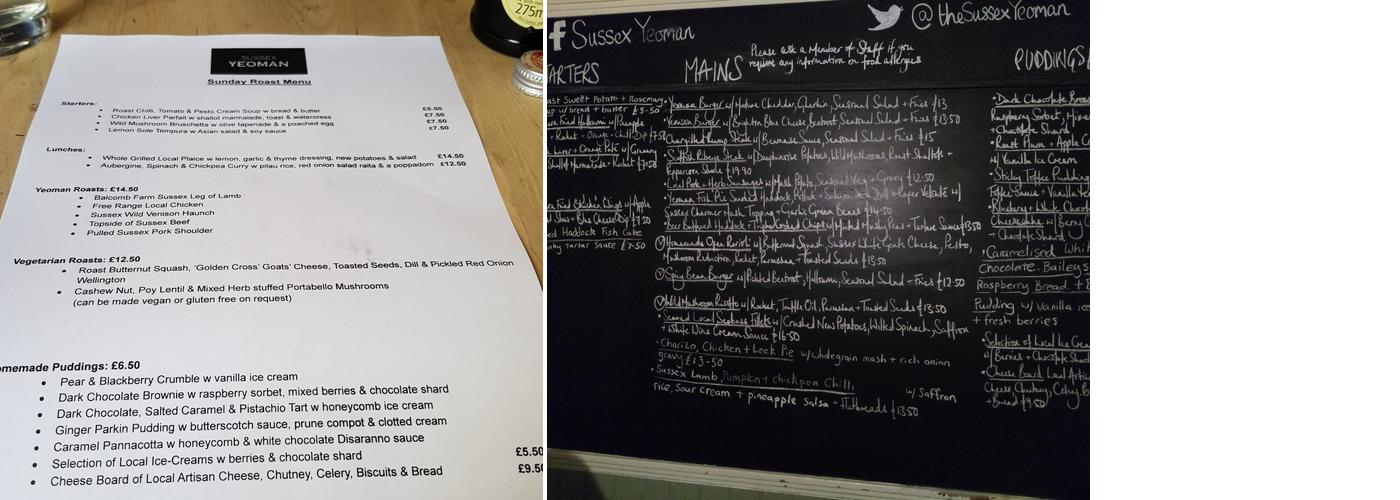 275m
SUSSEX
YEOMAN
Sunday Roast Menu
Starters:
• Roast Chilli, Tomato & Pesto Cream Soup w bread & butter £5.50
• Chicken Liver Parfait w shallot marmalade, toast & watercress £7.50
• Wild Mushroom Bruschetta w olive tapenade & a poached egg £7.50
• Lemon Sole Tempura w Asian salad & soy sauce £7.50
Lunches:
• Whole Grilled Local Plaice w lemon, garlic & thyme dressing, new potatoes & salad £14.50
• Aubergine, Spinach & Chickpea Curry w pilau rice, red onion salad raita & a poppadom £12.50
Yeoman Roasts: £14.50
• Balcomb Farm Sussex Leg of Lamb
• Free Range Local Chicken
• Sussex Wild Venison Haunch
• Topside of Sussex Beef
• Pulled Sussex Pork Shoulder
Vegetarian Roasts: £12.50
• Roast Butternut Squash, 'Golden Cross' Goats' Cheese, Toasted Seeds, Dill & Pickled Red Onion
Wellington
• Cashew Nut, Poy Lentil & Mixed Herb stuffed Portabello Mushrooms
(can be made vegan or gluten free on request)
omemade Puddings: £6.50
• Pear & Blackberry Crumble w vanilla ice cream
• Dark Chocolate Brownie w raspberry sorbet, mixed berries & chocolate shard
• Dark Chocolate, Salted Caramel & Pistachio Tart w honeycomb ice cream
• Ginger Parkin Pudding w butterscotch sauce, prune compot & clotted cream
• Caramel Pannacotta w honeycomb & white chocolate Disaranno sauce
• Selection of Local Ice-Creams w berries & chocolate shard £5.50
• Cheese Board of Local Artisan Cheese, Chutney, Celery, Biscuits & Bread £9.50
f Sussex Yeoman
@theSussexYeoman
Please ask a Member of Staff if you
require any information on food allergies
ARTERS
ast Sweet Potato + Rosemary
w/ bread + butter £5-50
Fried Halloumi w/ Pineapple
+ Rocket + Orange + Chilli Dip £7.50
Liver + Orange Pate w/ Granary
Shallot Marmalade + Rocket £7.50
Fried Chicken Wings w/ Apple
Slaw + Blue Cheese Dip £7.50
ed Haddock Fish Cake
nky tartar sauce £7-50
MAINS
• Yeoman Burger w/ Mature Cheddar, Gherkin, Seasonal Salad + Fries £13
• Venison Burger w/ Brighton Blue Cheese, Beetroot, Seasonal Salad + Fries £13.50
• Chargrilled Rump Steak w/ Bearnaise Sauce, Seasonal Salad + Fries £15
• Scottish Ribeye Steak w/ Dauphinoise Potatoes, Wild Mushrooms, Roast Shallots +
Peppercorn Sauce £19.90
• Local Pork + Herb Sausages w/ Mash Potato, Seasonal Veg + Gravy £12.50
• Yeoman Fish Pie Smoked Haddock, Pollock + Salmon in a Dill + Caper Veloute w/
Sussex Charmer Mash Topping + Garlic Green Beans £14.50
• Beer Battered Haddock + Triple Cooked Chips w/ Minted Mushy Peas + Tartare Sauce £13.50
(V) Homemade Open Ravioli w/ Butternut Squash, Sussex White Goats Cheese, Pesto,
Mushroom Reduction, Rocket, Parmesan + Toasted Seeds £13.50
(V) Spicy Bean Burger w/ Pickled Beetroot, Halloumi, Seasonal Salad + Fries £12.50
(V) Wild Mushroom Risotto w/ Rocket, Truffle Oil, Parmesan + Toasted Seeds £13.50
• Seared Local Seabass Fillets w/ Crushed New Potatoes, Wilted Spinach, Saffron
+ White Wine Cream Sauce £16.50
• Chorizo, Chicken + Leek Pie w/ wholegrain mash + rich onion
gravy £13-50
• Sussex Lamb, Pumpkin + chickpea Chilli, w/ Saffron
rice, sour cream + pineapple salsa + flatbreads £13.50
PUDDINGS
• Dark Chocolate Brow
Raspberry Sorbet,
+ Chocolate Shard
• Roast Plum + Apple C
w/ Vanilla Ice Cream
• Sticky Toffee Pudding
Toffee Sauce + Vanilla
• Blueberry + White Chocola
Cheesecake w/ Berry C
+ Chocolate Shard
• Caramelised Whit
Chocolate, Baileys
Raspberry Bread +
Pudding w/ Vanilla ice
+ fresh berries
• Selection of Local Ice Crea
w/ Berries + Chocolate Shard
• Cheese Board Local Artis
Cheese Chutney, Celery, B
+ Bread £9.50